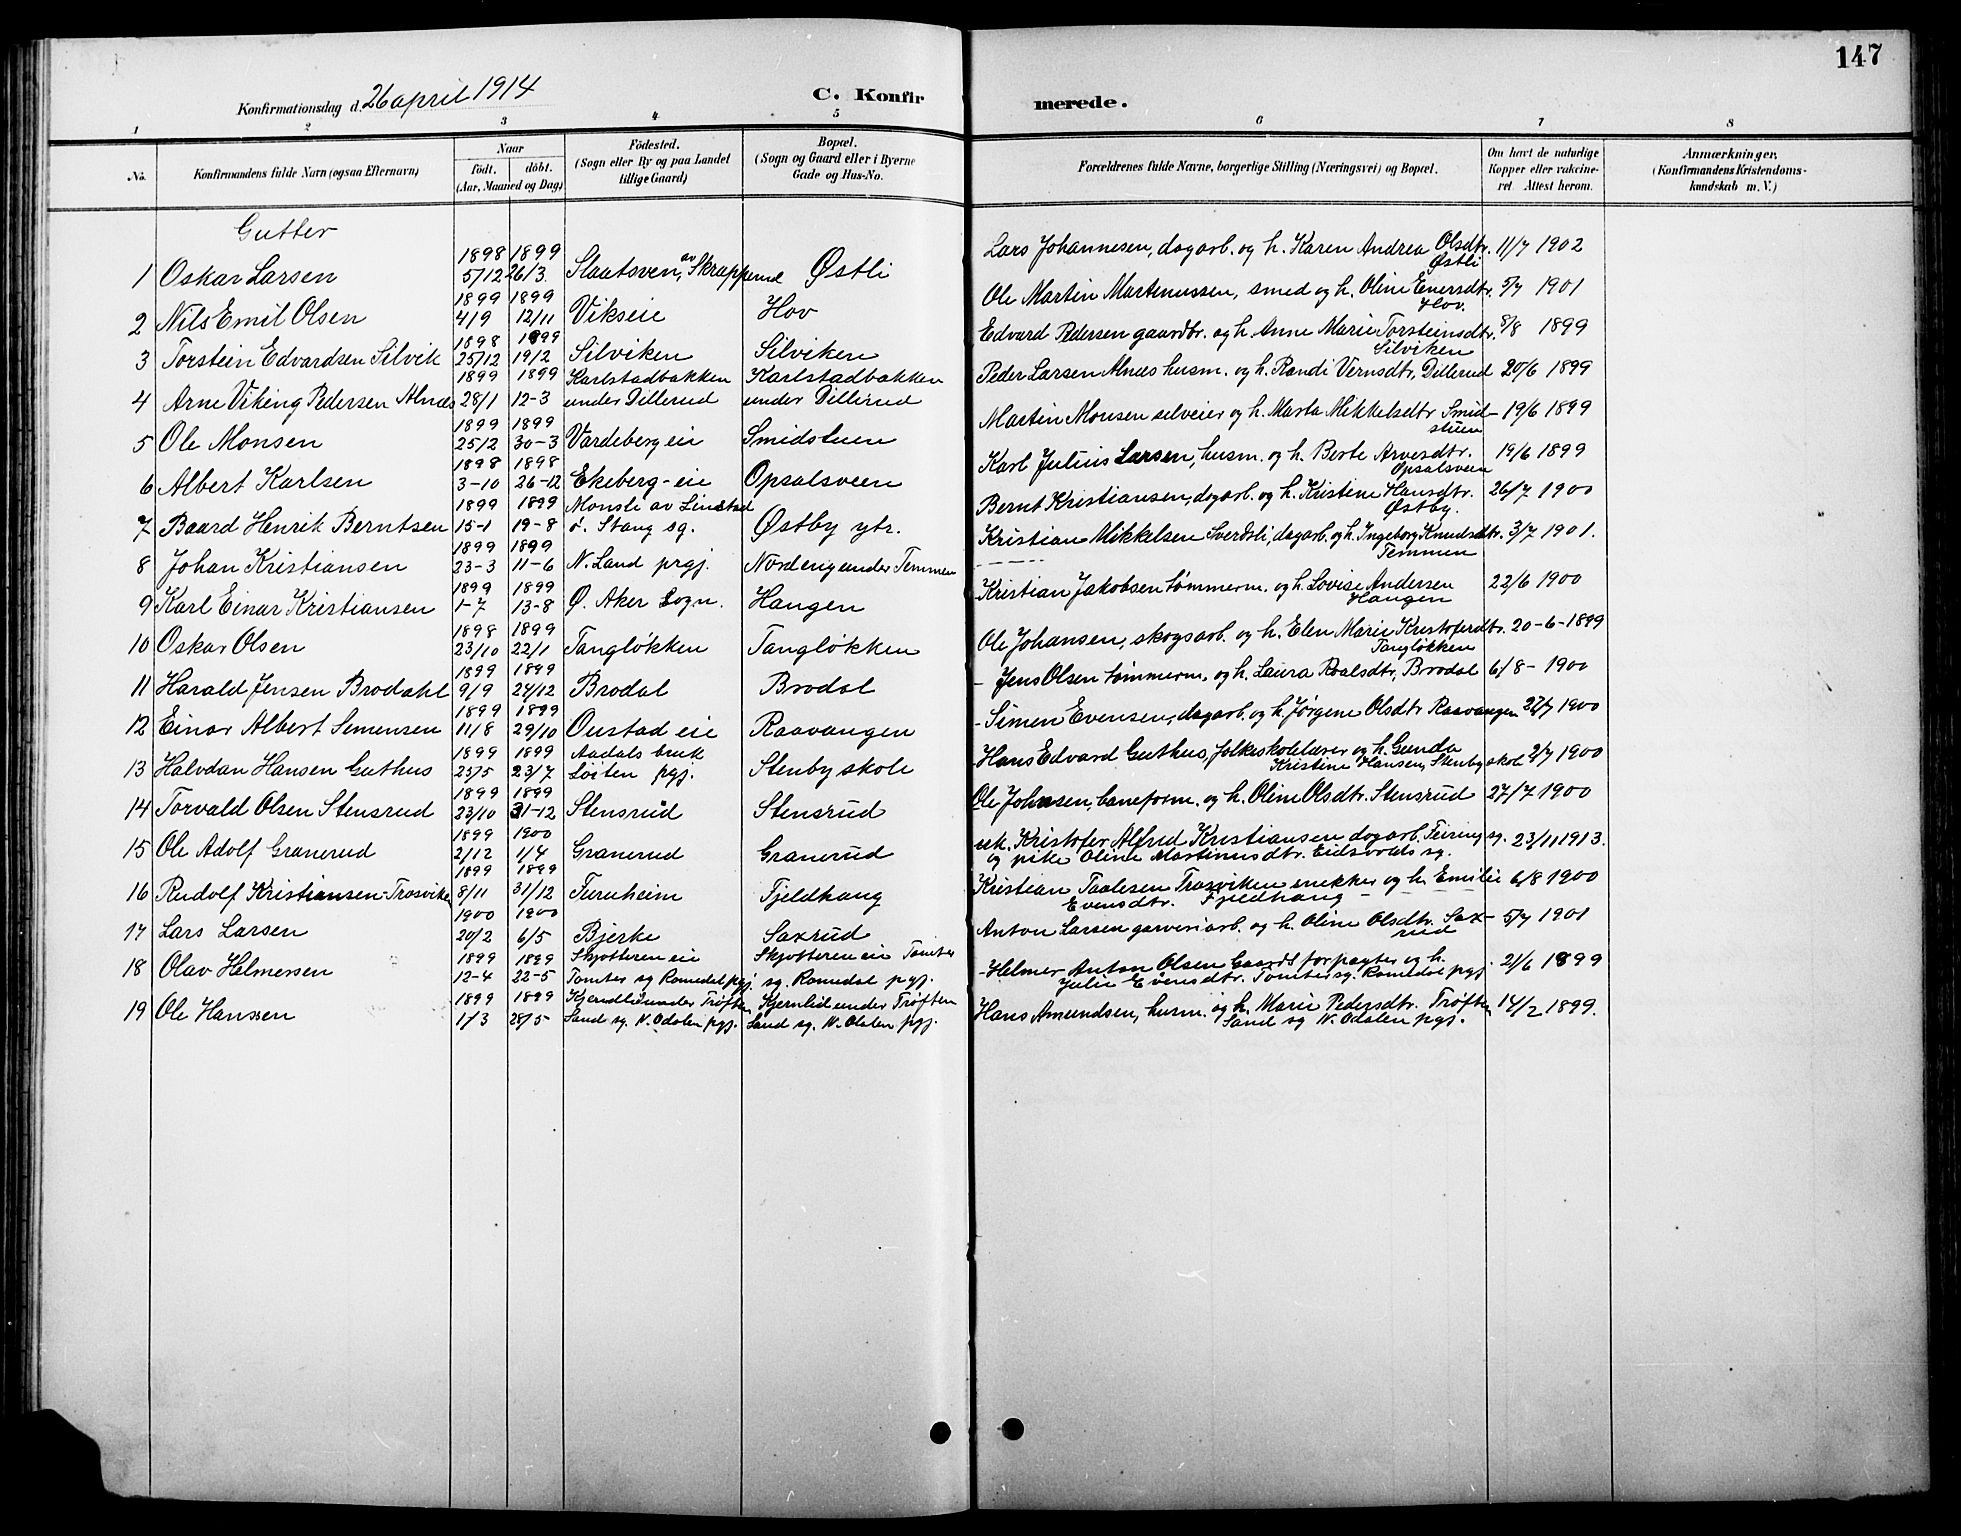 147
Konfirmationsdag d. 26 april 1914
C. Konfirmerede.
1 2 3 4 5 6 7 8
No.
Konfirmandens fulde Navn (ogsaa Efternavn)
Naar
födt. döbt.
(Aar, Maaned og Dag)
Födested.
(Sogn eller By og paa Landet
tillige Gaard)
Bopæl.
(Sogn og Gaard eller i Byerne
Gade og Hus-No.
Forældrenes fulde Navne, borgerlige Stilling (Næringsvei) og Bopæl.
Om havt de naturlige
Kopper eller vakcine-
ret. Attest herom.
Anmærkninger,
(Konfirmandens Kristendoms-
kundskab m. V.)
Gutter
1 Oskar Larsen 1898 5/12 1899 26/3 Slaatsven, av Skrapperud Østli Lars Johannesen, dagarb. og h. Karen Andrea Olsdtr. Østli 11/7 1902
2 Nils Emil Olsen 1899 4/9 1899 12/11 Vikseie Hov Ole Martin Martenussen, smed og h. Oline Enersdtr. Hov. 5/7 1901
3 Torstein Edvardsen Silvik 1898 25/12 1899 19/2 Silviken Silviken Edvard Pedersen gaardbr. og h. Anne Marie Torsteinsdtr. Silviken 8/8 1899
4 Arne Viking Pedersen Alnæs 1899 28/1 1899 12-3 Karlstadbakken under Dillerud Karlstadbakken under Dillerud Peder Larsen Alnæs husm. og h. Randi Vernsdtr. Dillerud 20/6 1899
5 Ole Monsen 1899 25/2 1899 30-3 Vardeberg eie Smidstuen Martin Monsen selveier og h. Marta Mikkelsdtr Smidstuen 19/6 1899
6 Albert Karlsen 1898 3-10 1898 26-12 Ekeberg-eie Opsalsveen Karl Julius Larsen, husm. og h. Berte Arvesdtr. Opsalsveen 19/6 1899
7 Baard Henrik Berntsen 1899 15-1 1899 19-8 Monsli av Linstad i. Stang sg. Østby ytr. Bernt Kristiansen, dagarb. og h. Kristine Hansdtr. Østby. 26/7 1900
8 Johan Kristiansen 1899 23-3 1899 11-6 N. Land prgj. Nordeng under Temmen Kristian Mikkelsen Sverdsli, dagarb. og h. Ingeborg Knudsdtr. Temmen 3/7 1901.
9 Karl Einar Kristiansen 1899 1-7 1899 13-8 Ø. Aker Sogn. Haugen Kristian Jakobsen tømmerm. og h. Lovise Andersen Haugen 22/6 1900
10 Oskar Olsen 1898 23/10 1899 22/1 Tangløkken Tangløkken Ole Johansen, skogsarb. og h. Elen Marie Kristoferdtr. Tangløkken 20-6-1899
11 Harald Jensen Brodahl 1899 9/9 1899 24/12 Brodal Brodal Jens Olsen tømmerm. og h. Laura Roalsdtr. Brodal 6/8 - 1900
12 Einar Albert Semensen 1899 11/8 1899 29/10 Oustad eie Raavangen Simen Evensen, dagarb. og h. Jørgene Olsdtr Raavangen 27/7 1900
13 Halvdan Hansen Guthus 1899 25/5 1899 23/7 Aadals bruk Löiten pgj. Stenby skole Hans Edvard Guthus, folkeskolelærer og h. Gunda Kristine Hansen, Stenby skole 2/7 1900
14 Torvald Olsen Stensrud 1899 23/10 1899 31-12 Stensrud Stensrud Ole Johnsen, baneform. og h. Oline Olsdtr. Stensrud 27/7 1900
15 Ole Adolf Granerud 1899 2/12 1900 1/4 Granerud Granerud Kristofer Alfred Kristiansen dagarb. Feiring sg. og pike Oline Martinusdtr. Eidsvolds sg. 23/11 1913.
16 Rudolf Kristiansen-Trosviken 1899 8/11 1899 31/12 Furuheim Fjeldhaug Kristian Taalesen Trosviken snekker og h. Emilie Evensdtr. Fjeldhaug 6/8 1900
17 Lars Larsen 1900 20/2 1900 6/5 Bjerke Saxrud Anton Larsen garveriarb. og h. Oline Olsdtr. Saxrud 5/7 1901
18 Olav Helmersen 1899 12-4 1899 22-5 Skjotteren eie Tomter sg Romedal pgj. Skjotteren eie Tomter sg. Romedal pgj. Helmer Anton Olsen Gaardsforpagter og h. Julie Evensdtr. Tomter sg. Romedal pgj 21/6 1899
19 Ole Hanssen 1899 1/3 1899 28/5 Kjernlid under Trøften Sand sg. N. Odalen pgj. Kjernlid under Trøften Sand sg. N. Odalen pgj. Hans Amundsen, husm. og h. Marie Pedersdtr. Trøften Sand sg N. Odalen pgj. 14/2 1899.